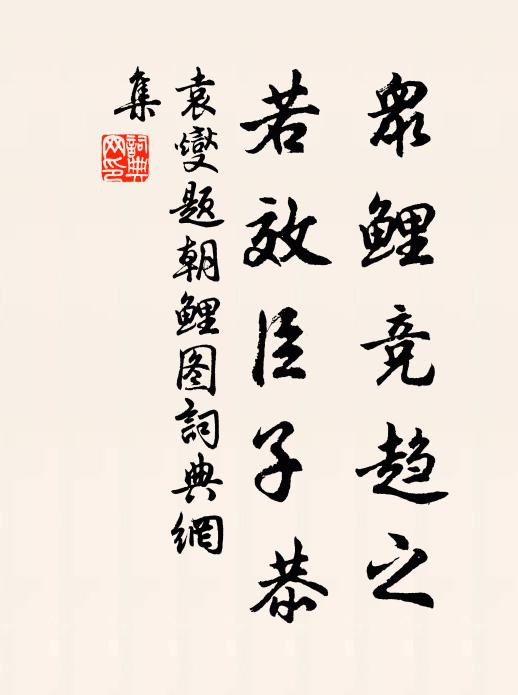 眾鯉竞趋之
若效臣子恭
袁燮题朝鲤图詞典網
集
詞典
网印